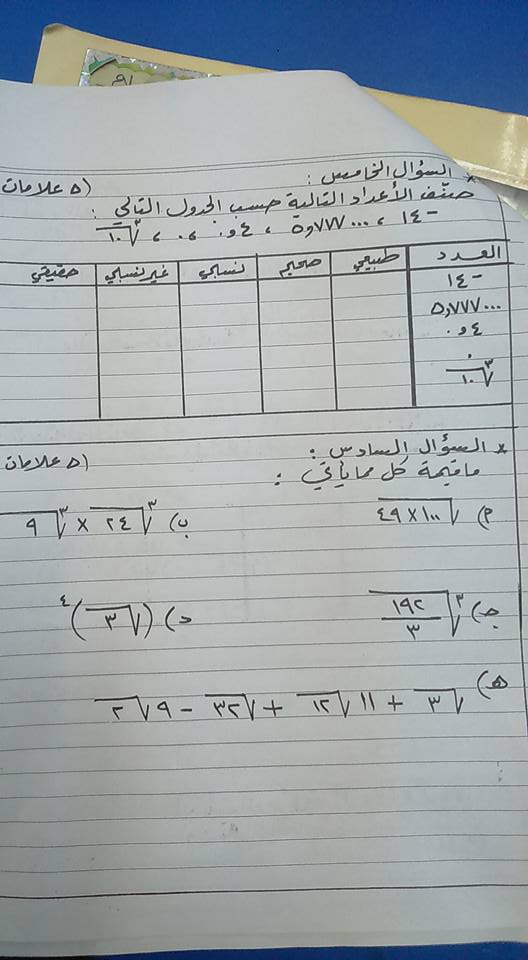 * السؤال الخامس : (٥ علامات
صنّف الأعداد التالية حسب الجدول التالي :
-١٤ ، ٥,٧٧٧... ، ٤,٠ ، ٠ ، ∛١٠
العدد طبيعي صحيح نسبي غير نسبي حقيقي
-١٤
٥,٧٧٧...
٤,٠
٠
∛١٠
* السؤال السادس : (٥ علامات
ما قيمة كل مما يأتي :
أ) √١٠٠×٤٩ ب) ∛٢٤ × ∛٩
جـ) ∛١٩٢/٣ د) (√٣)^٤
هـ) √٣ + ١١√١٢ + √٣٢ - ٩√٢